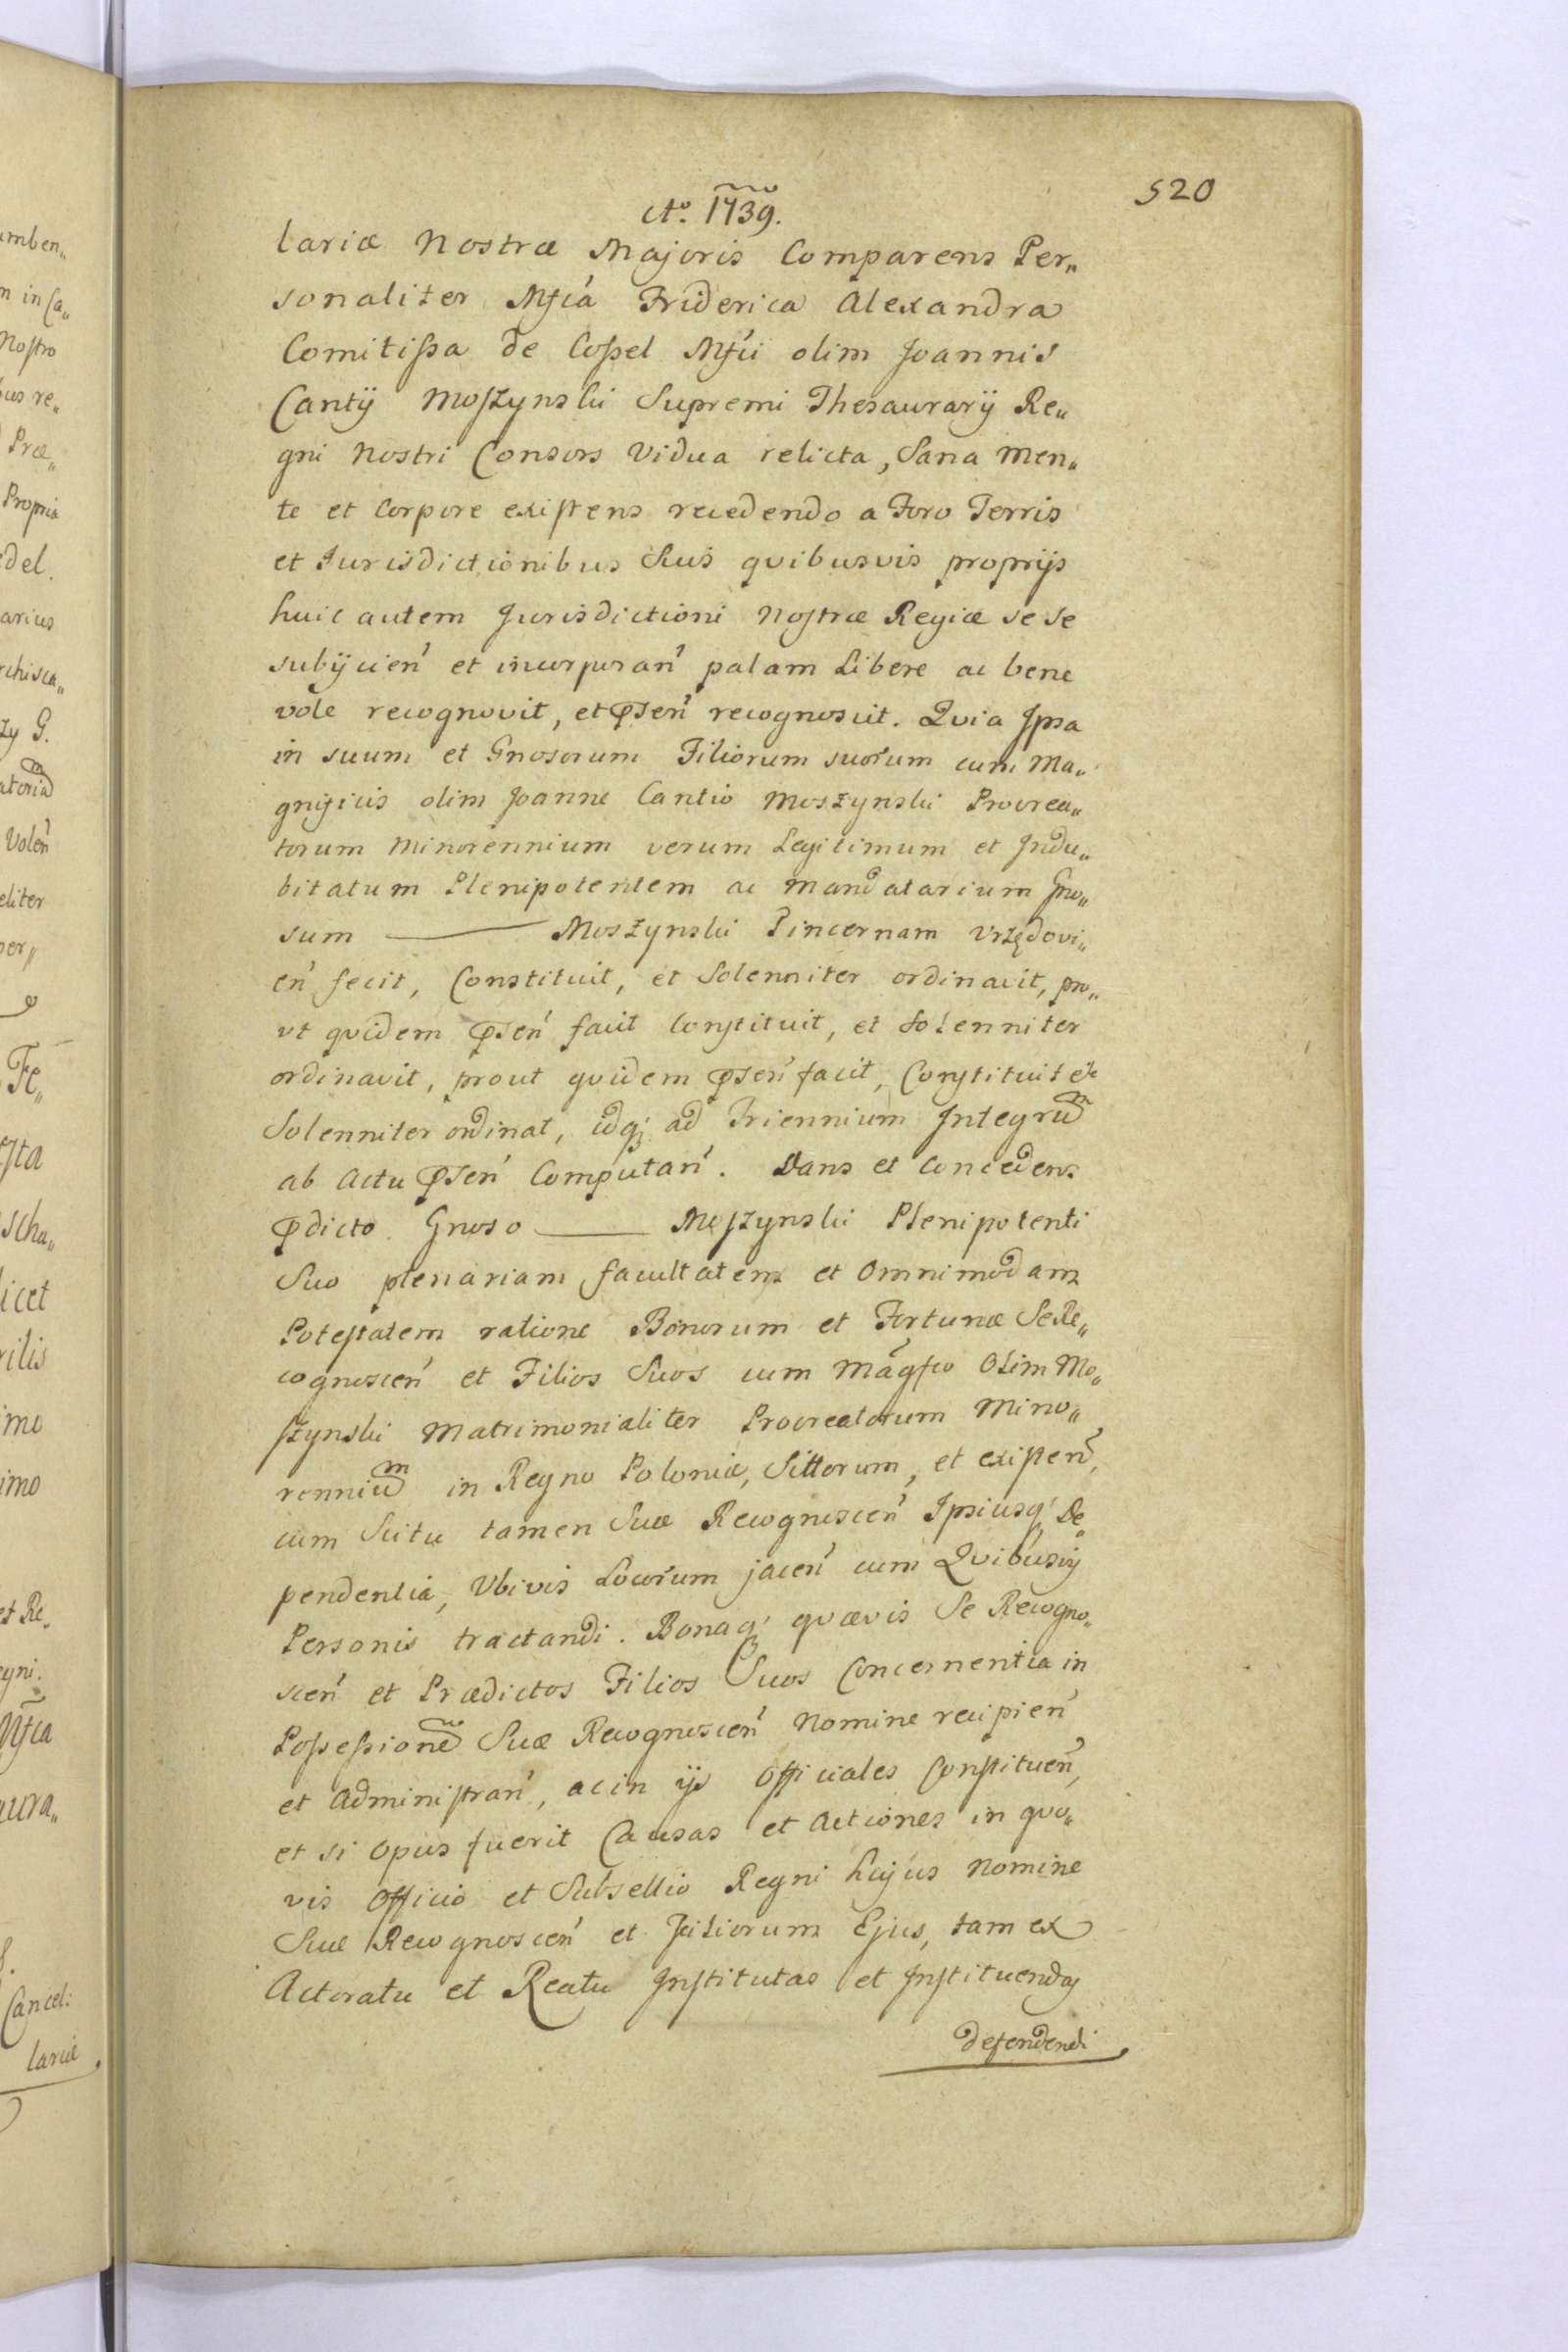 520
Ao. 1739.
lariæ Nostræ Majoris Comparens Per„
sonaliter Mfca Friderica Alexandra
Comitissa de Cossel Mfci olim Joannis
Cantij Moszynski Supremi Thesaurarij Re„
gni Nostri Consors Vidua relicta, Sana Men„
te et Corpore existens recedendo a Foro Terris
et Jurisdictionibus Suis quibusvis proprijs
huic autem Jurisdictioni Nostræ Regiæ se se
subijcien' et incorporan' palam Libere ac bene
vole recognovit, et Psen' recognoscit. Quia Ipsa
in suum et Gnosorum Filiorum suorum cum Ma„
gnificis olim Joanne Cantio Moszynski Procrea„
torum Minorennium verum Legitimum et Indu„
bitatum Plenipotentem ac Mandatarium Gno„
sum ——— Moszynski Pincernam Vrzędovi„
en' fecit, Constituit, et Solenniter ordinavit, pro„
vt quidem Psen' facit Constituit, et Solenniter
ordinavit, prout quidem Psen' facit, Constituit et
Solenniter ordinat, idq; ad Triennium Integrum
ab Actu Psen' Computan'. Dans et Concedens
Pdicto Gnoso ——— Moszynski Plenipotenti
Suo plenariam facultatem et Omnimodam
Potestatem ratione Bonorum et Fortunæ Se Re„
cognoscen' et Filios Suos cum Magfco Olim Mo„
szynski Matrimonialiter Procreatorum Mino„
rennium in Regno Poloniæ, Sittorum, et existen',
cum Scitu tamen Suæ Recognoscen' Ipsiusq; De„
pendentia, Vbivis Locorum jacen' cum Quibusvis
Personis tractandi. Bonaq; quævis Se Recogno„
scen' et Prædictos Filios Suos Concernentia in
Possessionem Suæ Recognoscen' Nomine recipien'
et Administran', ac in ijs Officiales Constituen',
et si opus fuerit Causas et Actiones in quo„
vis Officio et Subsellio Regni hujus Nomine
Suæ Recognoscen' et Filiorum Ejus, tam ex
Actoratu et Reatu Institutas et Instituendas
defendendi